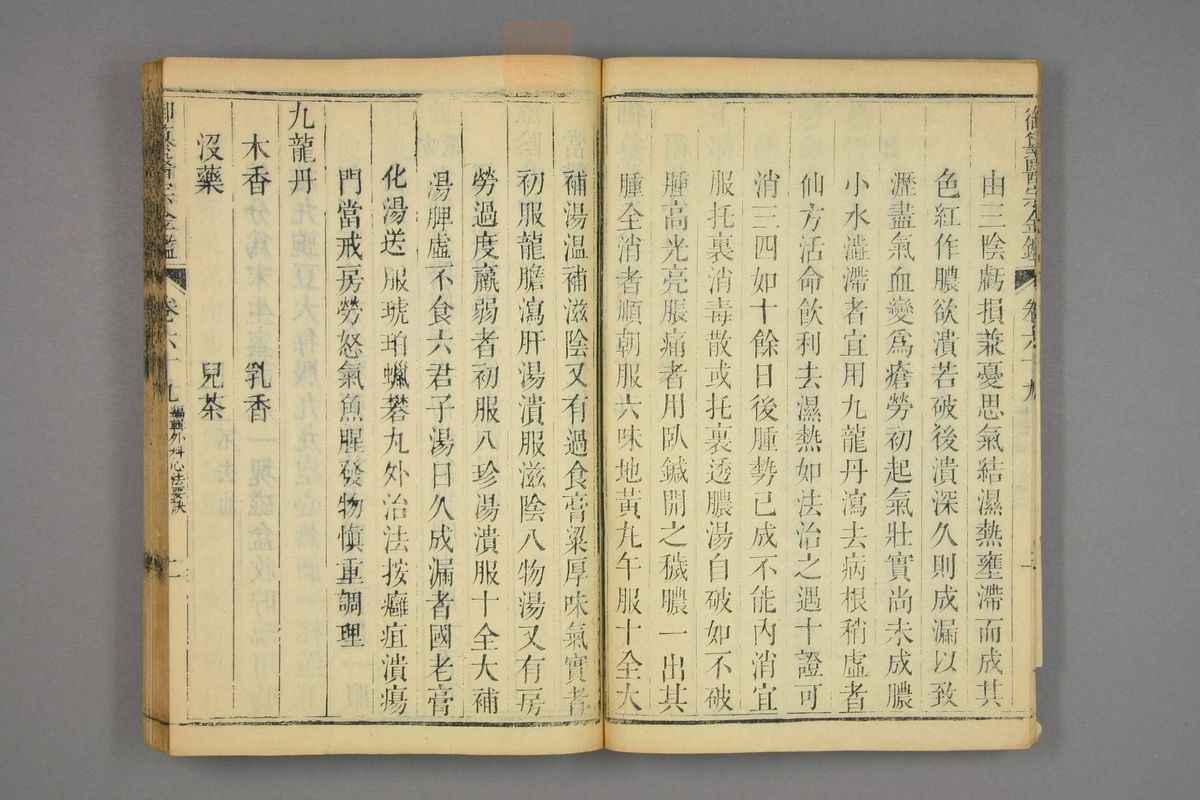 御纂醫宗金鑑 卷六十九
由三陰虧損兼憂思氣結濕熱壅滯而成其
色紅作膿欲潰若破後潰深久則成漏以致
瀝盡氣血變爲瘡勞初起氣壯實尚未成膿
小水澁滯者宜用九龍丹瀉去病根稍虛者
仙方活命飲利去濕熱如法治之遇十證可
消三四如十餘日後腫勢已成不能內消宜
服托裏消毒散或托裏透膿湯自破如不破
腫高光亮脹痛者用臥鍼開之穢膿一出其
腫全消者順朝服六味地黃丸午服十全大
補湯溫補滋陰又有過食膏粱厚味氣實者
初服龍膽瀉肝湯潰服滋陰八物湯又有房
勞過度羸弱者初服八珍湯潰服十全大補
湯脾虛不食六君子湯日久成漏者國老膏
化湯送服琥珀蠟礬丸外治法按癰疽潰瘍
門當戒房勞怒氣魚腥發物慎重調理
九龍丹
木香 乳香
沒藥 兒茶
御纂醫宗金鑑 卷六十九 編輯外科心法要訣 二